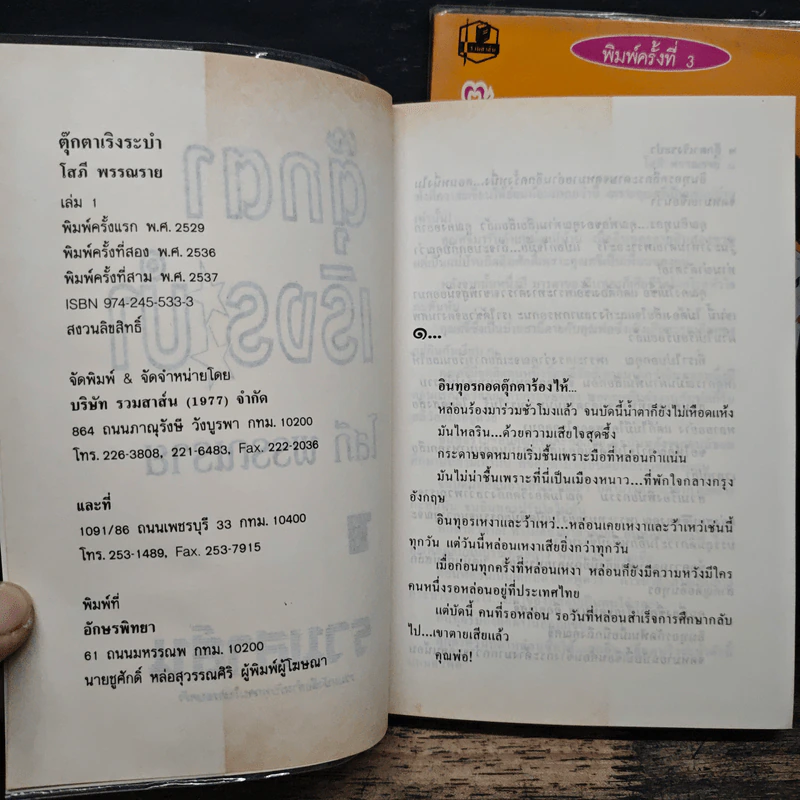 พิมพ์ครั้งที่ 3
ตุ๊กตาเริงระบำ
โสภี พรรณราย
เล่ม 1
พิมพ์ครั้งแรก พ.ศ. 2529
พิมพ์ครั้งที่สอง พ.ศ. 2536
พิมพ์ครั้งที่สาม พ.ศ. 2537
ISBN 974-245-533-3
สงวนลิขสิทธิ์
จัดพิมพ์ & จัดจำหน่ายโดย
บริษัท รวมสาส์น (1977) จำกัด
864 ถนนภาณุรังษี วังบูรพา กทม. 10200
โทร. 226-3808, 221-6483, Fax. 222-2036
และที่
1091/86 ถนนเพชรบุรี 33 กทม. 10400
โทร. 253-1489, Fax. 253-7915
พิมพ์ที่
อักษรพิทยา
61 ถนนมหรรณพ กทม. 10200
นายชูศักดิ์ หล่อสุวรรณศิริ ผู้พิมพ์ผู้โฆษณา
๑...
อินทุอรกอดตุ๊กตาร้องไห้...
หล่อนร้องมาร่วมชั่วโมงแล้ว จนบัดนี้น้ำตาก็ยังไม่เหือดแห้ง
มันไหลริน...ด้วยความเสียใจสุดซึ้ง
กระดาษจดหมายเริ่มชื้นเพราะมือที่หล่อนกำแน่น
มันไม่น่าชื้นเพราะที่นี่เป็นเมืองหนาว...ที่พักใจกลางกรุง
อังกฤษ
อินทุอรเหงาและว้าเหว่...หล่อนเคยเหงาและว้าเหว่เช่นนี้
ทุกวัน แต่วันนี้หล่อนเหงาเสียยิ่งกว่าทุกวัน
เมื่อก่อนทุกครั้งที่หล่อนเหงา หล่อนก็ยังมีความหวังมีใคร
คนหนึ่งรอหล่อนอยู่ที่ประเทศไทย
แต่บัดนี้ คนที่รอหล่อน รอวันที่หล่อนสำเร็จการศึกษากลับ
ไป...เขาตายเสียแล้ว
คุณพ่อ!